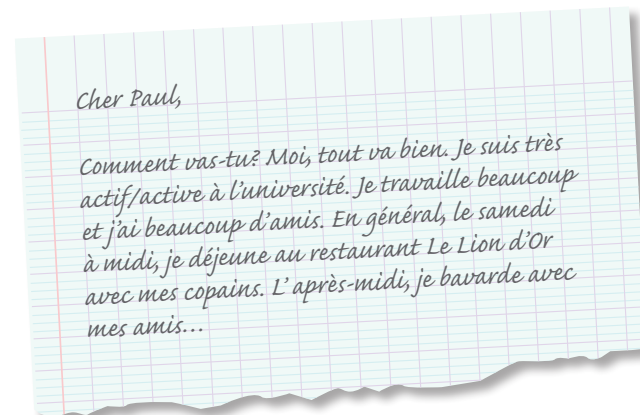 Cher Paul,
Comment vas-tu? Moi, tout va bien. Je suis très
actif/active à l'université. Je travaille beaucoup
et j'ai beaucoup d'amis. En général, le samedi
à midi, je déjeune au restaurant Le Lion d'Or
avec mes copains. L' après-midi, je bavarde avec
mes amis...